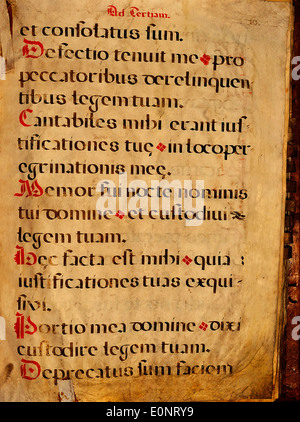 Ad Tertiam.
et consolatus sum.
Defectio tenuit me pro
peccatoribus derelinquen
tibus legem tuam.
Cantabiles mihi erant ius-
tificationes tuę in loco per
egrinationis meę.
Memor fui nocte nominis
tui domine et custodiui
legem tuam.
Hec facta est mihi quia
iustificationes tuas exqui-
sivi.
Portio mea domine dixi
custodire legem tuam.
Deprecatus sum faciem
alamy
a
a
Image ID: E0NRY9
www.alamy.com